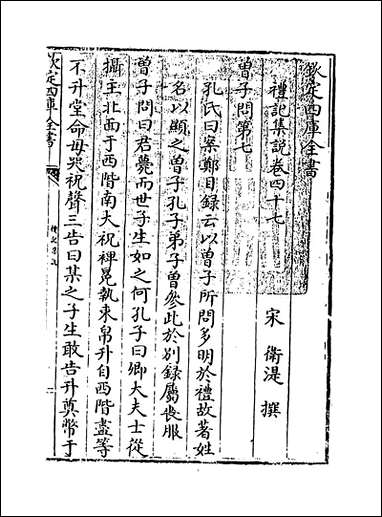 欽定四庫全書
禮記集說卷四十七
宋 衛湜 撰
曾子問第七
孔氏曰案鄭目録云以曾子所問多明於禮故著姓
名以顯之曾子孔子弟子曾參此於别録屬喪服
曾子問曰君薨而世子生如之何孔子曰卿大夫士從
攝主北面于西階南大祝裨冕執束帛升自西階盡等
不升堂命毋哭祝聲三告曰某之子生敢告升奠幣于
欽定四庫全書
禮記集說